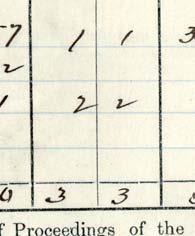 7 1 1 3
2
1 2 2
0 3 3
f Proceedings of the